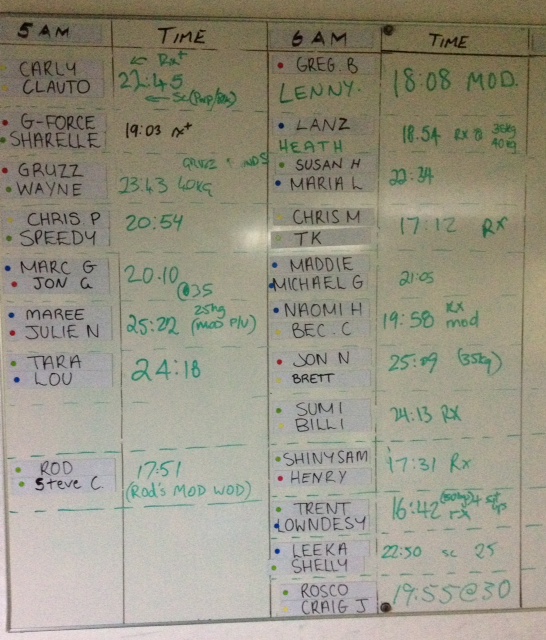 5 AM TIME
CARLY
CLAUTO
← Rx+
22:45
← Sc
G-FORCE
SHARELLE
19:03 rx+
GRUZZ
WAYNE
23.43 40KG
CHRIS P
SPEEDY
20:54
MARC G
JON G
20.10
@35
MAREE
JULIE N
25:22
25kg
(MOD P/U)
TARA
LOU
24:18
ROD
Steve C.
17:51
(Rod's MOD WOD)
6 AM TIME
GREG. B
LENNY.
18:08 MOD.
LANZ
HEATH
18.54 Rx
35kg
40kg
SUSAN H
MARIA L
CHRIS M
TK
17:12 Rx
MADDIE
MICHAEL G
21:05
NAOMI H
BEC. C
19:58 RX
mod
JON N
BRETT
(35kg)
SUMI
BILLI
24:13 RX
SHINYSAM
HENRY
17:31 Rx
TRENT
LOWNDESY
16:42
rx
LEEKA
SHELLY
22:50 sc 25
ROSCO
CRAIG J
19:55@30